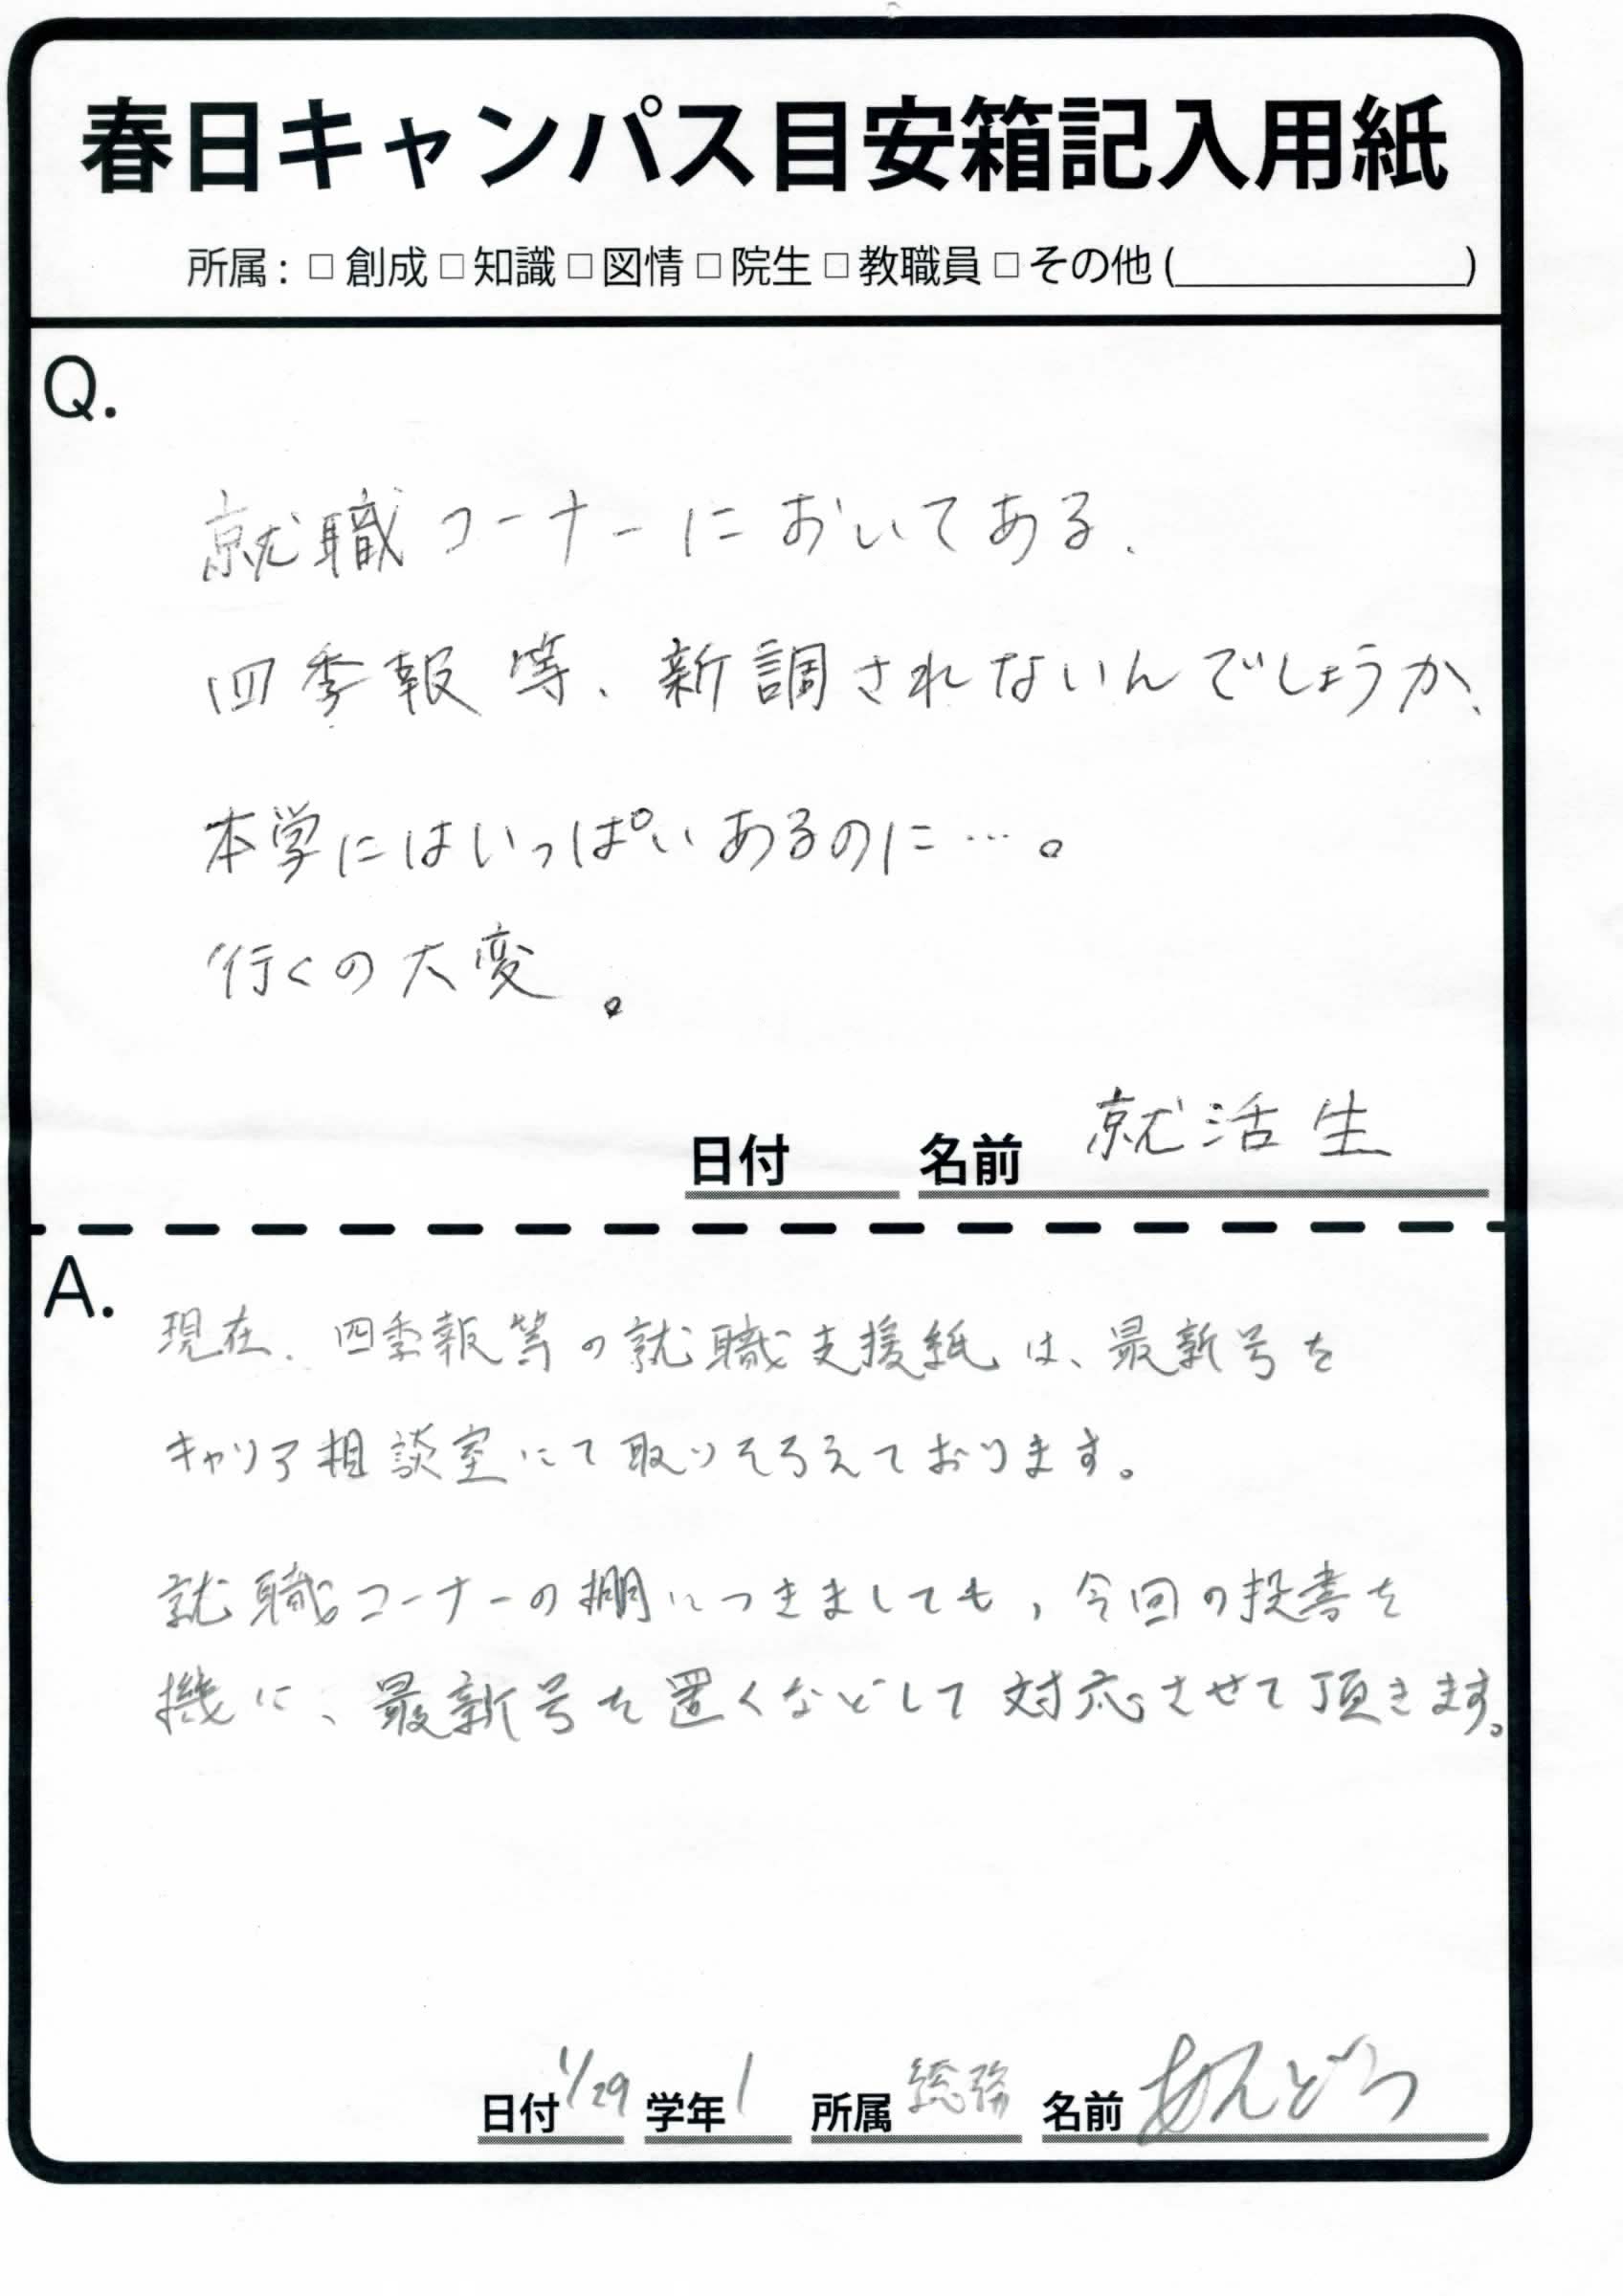 春日キャンパス目安箱記入用紙
所属：□ 創成 □ 知識 □ 図情 □ 院生 □ 教職員 □ その他 (　　　　)
Q.
就職コーナーにおいてある、
四季報等、新調されないんでしょうか、
本学にはいっぱいあるのに…。
行くの大変。
日付　名前 就活生
A.
現在、四季報等の就職支援紙は、最新号を
キャリア相談室にて取りそろえております。
就職コーナーの棚につきましても，今回の投書を
機に、最新号を置くなどして対応させて頂きます。
日付 1/29 学年 1 所属 総務 名前 あんどう